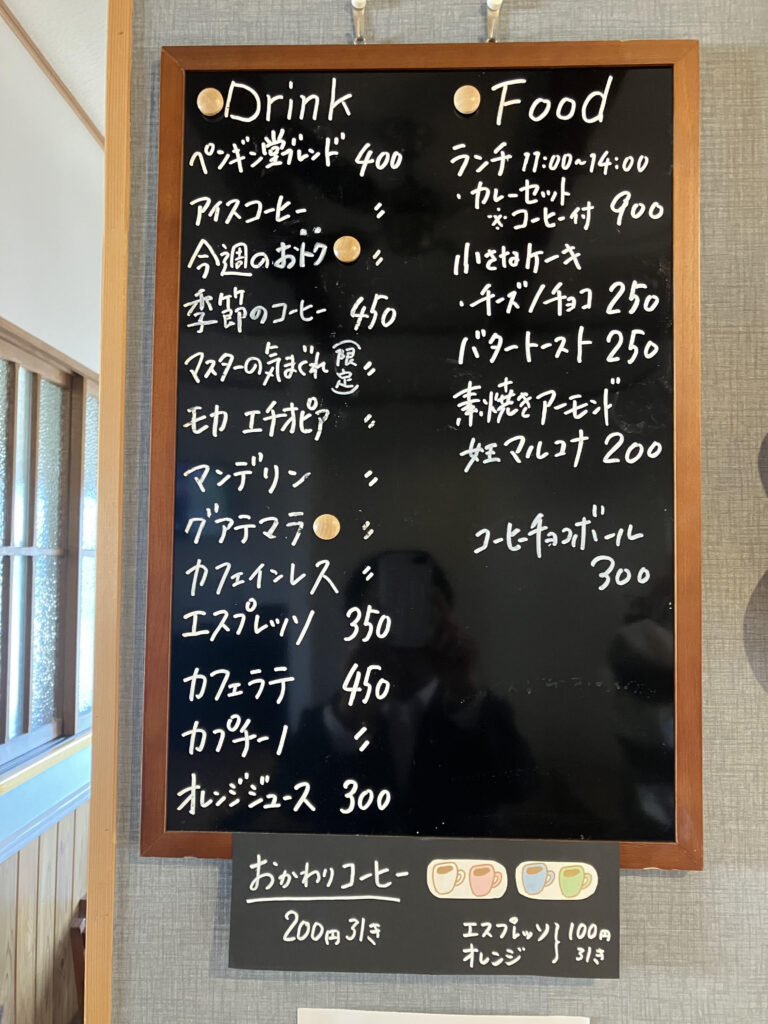 Drink
ペンギン堂ブレンド 400
アイスコーヒー 〃
今週のおトク 〃
季節のコーヒー 450
マスターの気まぐれ(限定) 〃
モカ エチオピア 〃
マンデリン 〃
グアテマラ 〃
カフェインレス 〃
エスプレッソ 350
カフェラテ 450
カプチーノ 〃
オレンジジュース 300
Food
ランチ 11:00~14:00
・カレーセット 900
※コーヒー付
小さなケーキ
・チーズ/チョコ 250
バタートースト 250
素焼きアーモンド
女王マルコナ 200
コーヒーチョコボール
300
おかわりコーヒー
200円引き
エスプレッソ
オレンジ
100円
引き